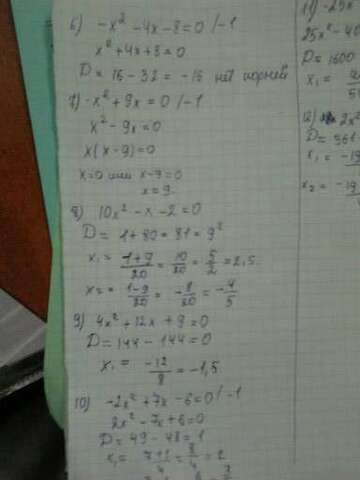 6) -x² - 4x - 8 = 0 /-1
x² + 4x + 8 = 0
D = 16 - 32 = -16 нет корней
7) -x² + 9x = 0 /-1
x² - 9x = 0
x(x - 9) = 0
x = 0 или x - 9 = 0
x = 9
8) 10x² - x - 2 = 0
D = 1 + 80 = 81 = 9²
x₁ = 1+9/20 = 10/20 = 5/2 = 2,5
x₂ = 1-9/20 = -8/20 = -4/5
9) 4x² + 12x + 9 = 0
D = 144 - 144 = 0
x₁ = -12/8 = -1,5
10) -2x² + 7x - 6 = 0 /-1
2x² - 7x + 6 = 0
D = 49 - 48 = 1
x₁ = 7+1/4 = 8/4 = 2
11) -25x
25x² - 40
D = 1600
x₁ =
12) 2x²
D = 361
x₁ = -19
x₂ = -19